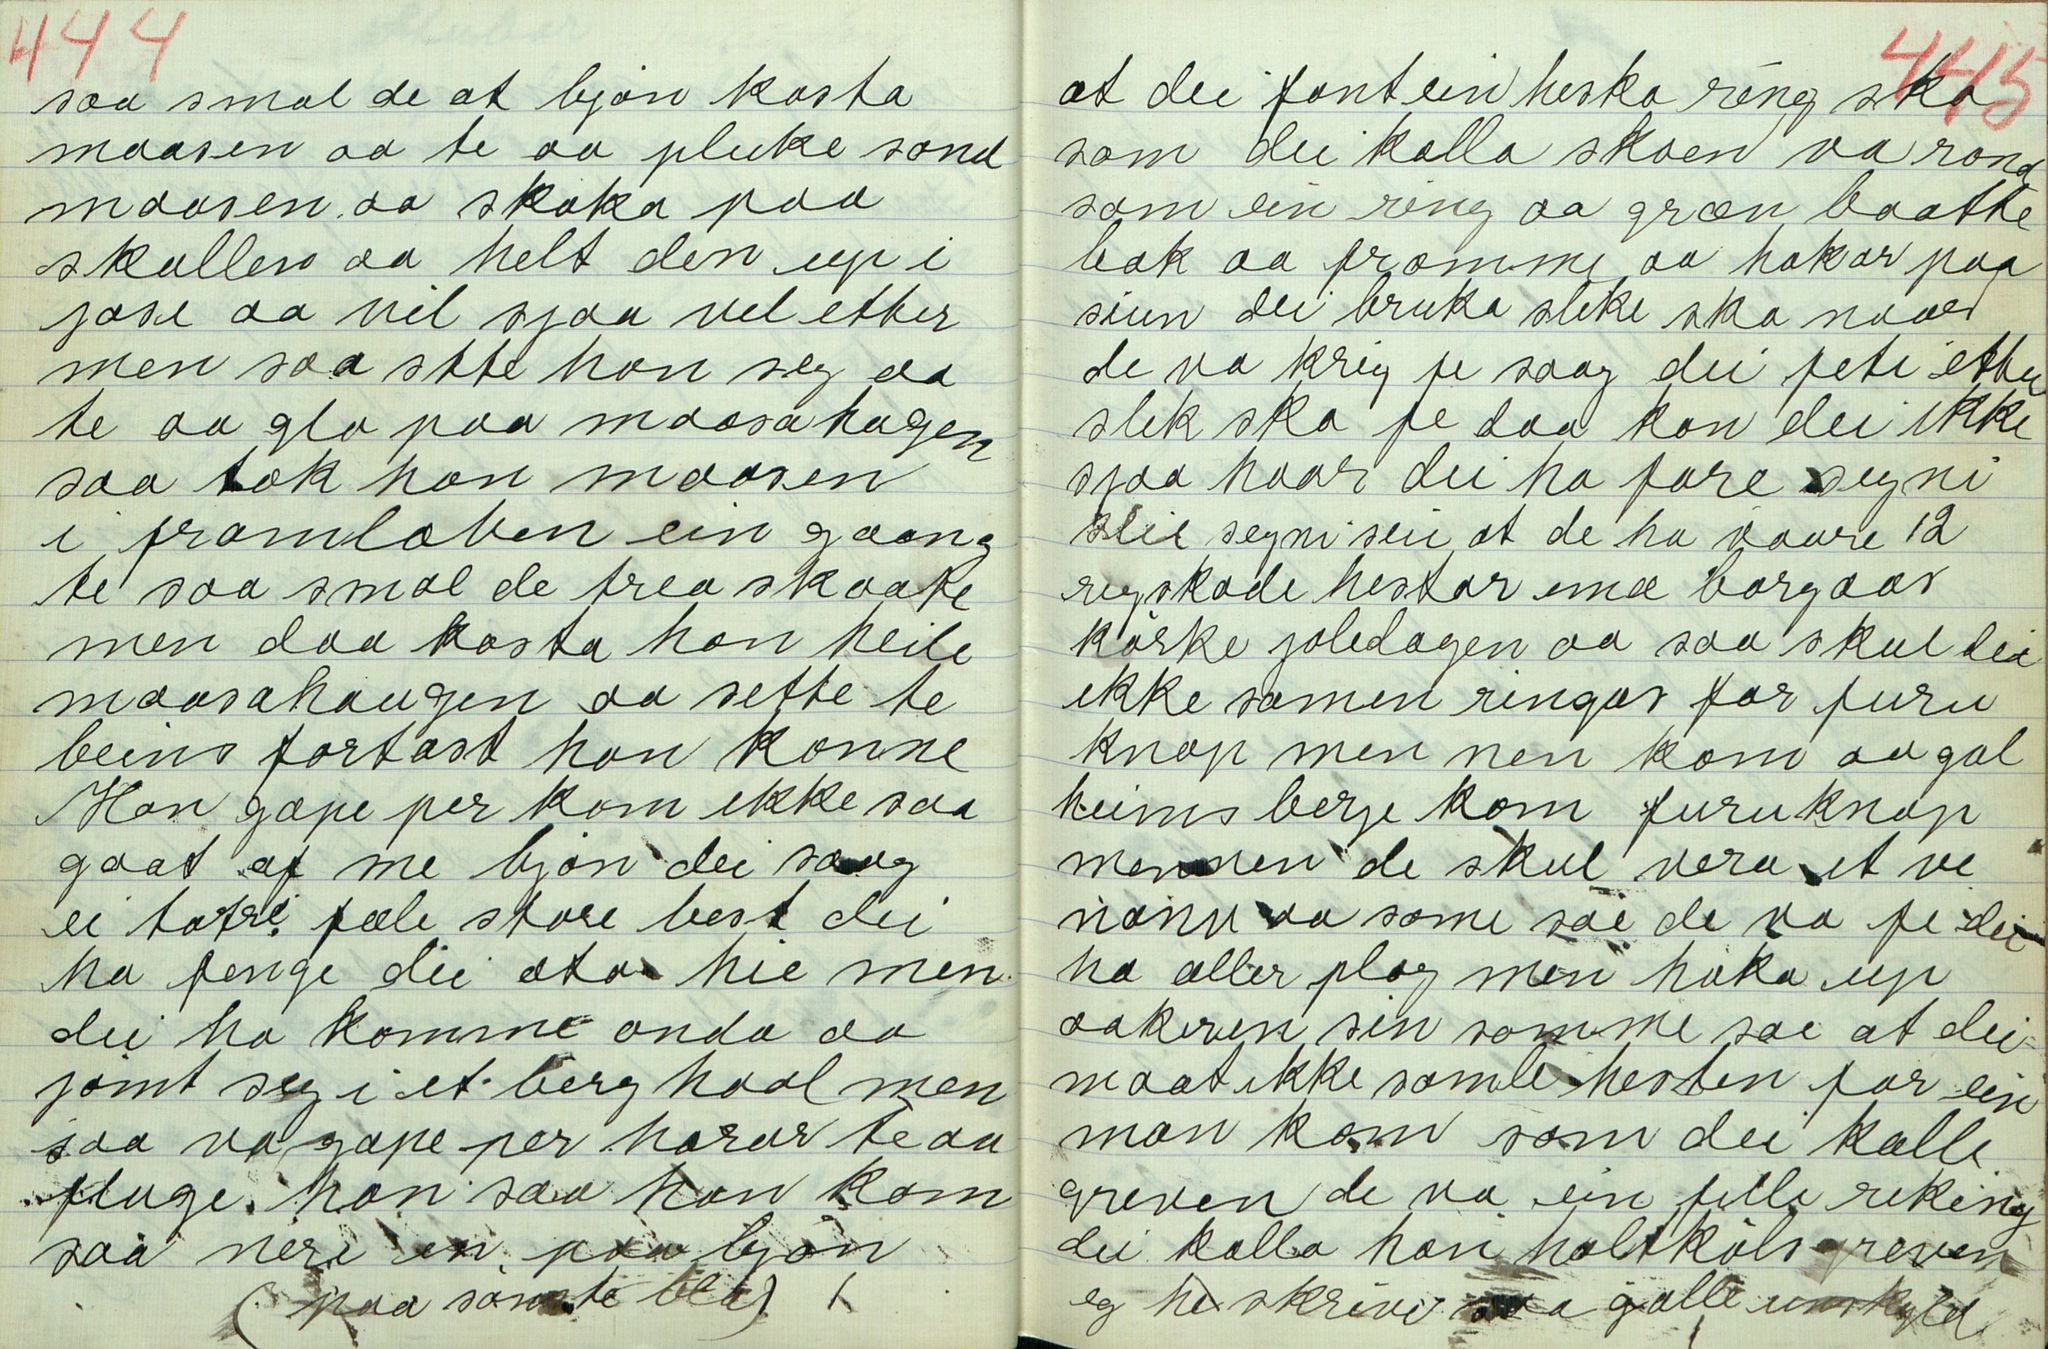 444
saa smal de at bjøn kasta
maasen aa te aa pluke sand
maasen aa skaka paa
skallen aa helt den up i
jose aa vil sjaa vel etter
men saa stte han seg aa
te aa glo paa maasahagen
saa tok han maasen
i framlaben ein gaang
te saa smal de trea skaate
men daa kasta han heile
maasahaugen aa sette te
beins fortast han konne
Han gape per kom ikke saa
gaat af me bjøn dei saag
ei fæle store best dei
ha fenge dei ota hie men
dei ha komme onda aa
jømt seg i et berg haal men
saa va gape per harar te aa
fluge han saa han kom
saa nere en paa bjøn
(paa sømste bla)
445
at dei fant ein heska ring sko
som dei kalla skoen va rond
som ein ring aa græn baatte
bak aa framme aa hakar paa
siun dei bruka slike sko naar
de va krig fe saag dei feti etter
slik sko fe daa kan dei ikke
sjaa haar dei ha fare segni
slil segni seii at de ha vaare 12
regskode hestar unæ borgaas
kørke joledagen aa saa skul dei
ikke samen ringas for furu
knap men nen kom aa gal
heims berge kom furuknap
mennen de skul vera et ve
nanu aa some sae de va fe dei
ha aller plog men haka up
aakeren sin somme sae at dei
maat ikke samle hesten for ein
man kom som dei kalle
greven de va ein fille reking
dei kalla han holtkølsgreven
eg he skrive saa galle unskyld